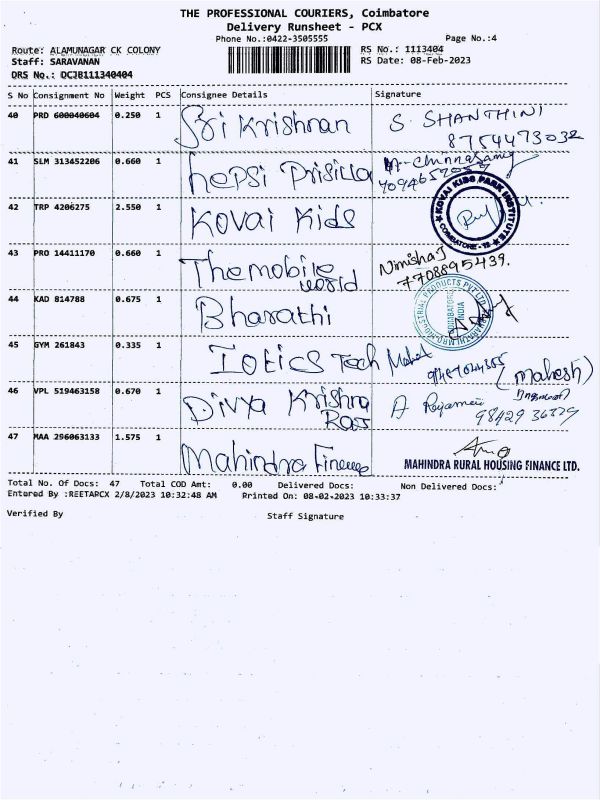 THE PROFESSIONAL COURIERS, Coimbatore
Delivery Runsheet - PCX
Phone No.:0422-3505555
Page No.:4
Route: ALAMUNAGAR CK COLONY
Staff: SARAVANAN
DRS No.: DCJB111340404
RS No.: 1113404
RS Date: 08-Feb-2023
S No Consignment No Weight PCS Consignee Details Signature
40 PRD 600040604 0.250 1 Sri Krishnan S. SHANTHINI
8754473032
41 SLM 313452206 0.660 1 hepsi Prisilla
42 TRP 4206275 2.550 1 Kovai Kids
KOVAI KIDS PARK INSTITUTE
COIMBATORE - 12
43 PRO 14411170 0.660 1 The mobile world Nimisha J
7708895439.
44 KAD 814788 0.675 1 Bharathi
INDUSTRIAL PRODUCTS PVT LTD
COIMBATORE
INDIA
45 GYM 261843 0.335 1 Iotics Tech
(Mahesh)
46 VPL 519463158 0.670 1 Divya Krishna Raj
98429 36379
47 MAA 296063133 1.575 1 Mahindra Finance
MAHINDRA RURAL HOUSING FINANCE LTD.
Total No. Of Docs: 47 Total COD Amt: 0.00 Delivered Docs: Non Delivered Docs:
Entered By :REETAPCX 2/8/2023 10:32:48 AM Printed On: 08-02-2023 10:33:37
Verified By Staff Signature